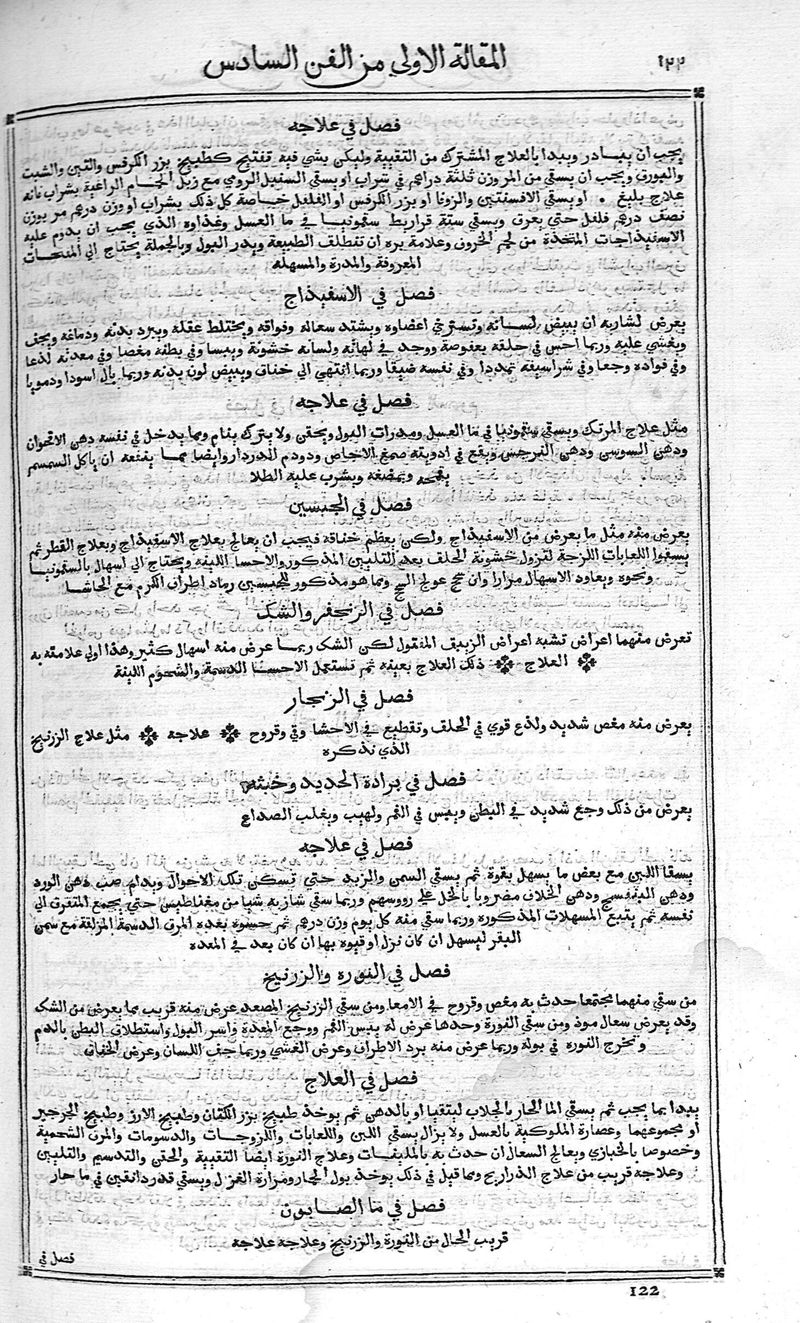 ١٢٢ المقالة الاولي من الفن السادس
فصل في علاجه
يجب ان يبادر ويبدا بالعلاج المشترك من التقيية وليكن بشي فيه تفتيح كطبيخ بزر الكرفس والتين والشبت
والبورق ويجب ان يسقي من المر وزن ثلثة دراهم في شراب او يسقي السنبل الرومي مع زبل الحمام الراغبة بشراب فانه
علاج بليغ • او يسقي الافسنتين والزوفا او بزر الكرفس او الفلفل خاصة كل ذلك بشراب او وزن درهم مر بوزن
نصف درهم فلفل حتي يعرق ويسقي ستة قراريط سقمونيا في ما العسل وغذاوه الذي يجب ان يدوم عليه
الاسفيذاجات المتخذة من لحم الخروف وعلامة بره ان تنطلق الطبيعة ويدر البول وبالجملة يحتاج الي المفتحات
المعروفة والمدرة والمسهله
فصل في الاسفيذاج
يعرض لشاربه ان يبيض لسانه وتسترخي اعضاوه ويشتد سعاله وفواقه ويختلط عقله ويبرد بدنه ودماغه ويجف
ويغشي عليه وربما احس في حلقه بعفوصة ووجد في لهاته ولسانه خشونة ويبسا وفي بطنه مغصا وفي معدته لذعا
وفي فواده وجعا وفي شراسيفه تمددا وفي نفسه ضيقا وربما انتهي الي خناق ويبيض لون بدنه وربما بال اسودا ودمويا
فصل في علاجه
مثل علاج المرتك ويسقي سقمونيا في ما العسل ومدرات البول ويحقن ولا يترك ينام ومما يدخل في نفسه دهن الاقحوان
ودهن السوسن ودهن النرجس ويقع في ادويته صمغ الاجاص ودودم الدردار وايضا مما ينفعه ان ياكل السمسم
يقمحه ويمضغه ويشرب عليه الطلا
فصل في الجبسين
يعرض منه مثل ما يعرض من الاسفيذاج ولكن يعظم خناقه فيجب ان يعالج بعلاج الاسفيذاج وبعلاج الفطر ثم
يسقوا اللعابات اللزجة لتزول خشونة الحلف بعد التليين المذكور والاحسا اللينه ويحتاج الي اسهال بالسقمونيا
ونحوه ويعاود الاسهال مرارا وان سحج عولج السحج ومما هو مذكور للجبسين رماد اطراف الكرم مع الحاشا
فصل في الزنجفر والشك
تعرض منهما اعراض تشبه اعراض الزيبق المقتول لكن الشك ربما عرض منه اسهال كثير وهذا اولي علامته به
❊ العلاج ❊ ذلك العلاج بعينه ثم تستعمل الاحسا الدسمة والشحوم اللينة
فصل في الزنجار
يعرض منه مغص شديد ولذع قوي في الحلف وتقطيع في الاحشا وقي وقروح ❊ علاجه ❊ مثل علاج الزرنيخ
الذي نذكره
فصل في برادة الحديد وخبثه
يعرض من ذلك وجع شديد في البطن ويبس في الفم ولهيب ويغلب الصداع
فصل في علاجه
يسقا اللبن مع بعض ما يسهل بقوة ثم يسقي السمن والزبد حتي تسكن تلك الاحوال ويدام صب دهن الورد
ودهن البنفسج ودهن الخلاف مضروبا بالخل علي رووسهم وربما سقي شاربه شيا من مغناطيس حتي يجمع المتفرق الي
نفسه ثم يتبع المسهلات المذكوره وربما سقي منه كل يوم وزن درهم ثم حسوه بعده المرق الدسمة المزلقة مع سمن
البقر ليسهل ان كان نزل او قيوه بها ان كان بعد في المعده
فصل في النوره والزرنيخ
من سقي منهما مجتمعا حدث به مغص وقروح في الامعا ومن سقي الزرنيخ المصعد عرض منه قريب مما يعرض من الشك
وقد يعرض سعال موذ ومن سقي النورة وحدها عرض له يبس الفم ووجع المعدة واسر البول واستطلاق البطن بالدم
وتخرج النوره في بوله وربما عرض منه برد الاطراف وعرض الغشي وربما جف اللسان وعرض الخناق
فصل في العلاج
يبدا بما يجب ثم يسقي الما الحار بالجلاب ليتقيا او بالدهن ثم يوخذ طبيخ بزر الكتان وطبيخ الارز وطبيخ الجرجير
او مجموعهما وعصارة الملوكية بالعسل ولا يزال يسقي اللبن واللعابات واللزوجات والدسومات والمرق الشحمية
وخصوصا بالخبازي ويعالج السعال ان حدث به بالملينات وعلاج النورة ايضا التقيية والحقن والتدسيم والتليين
وعلاجه قريب من علاج الذراريح ومما قيل في ذلك يوخذ بول الحمار ومرارة الغزل ويسقي قدر دانقين في ما حار
فصل في ما الصابون
قريب الحال من النورة والزرنيخ وعلاجه علاجه
فصل في
122